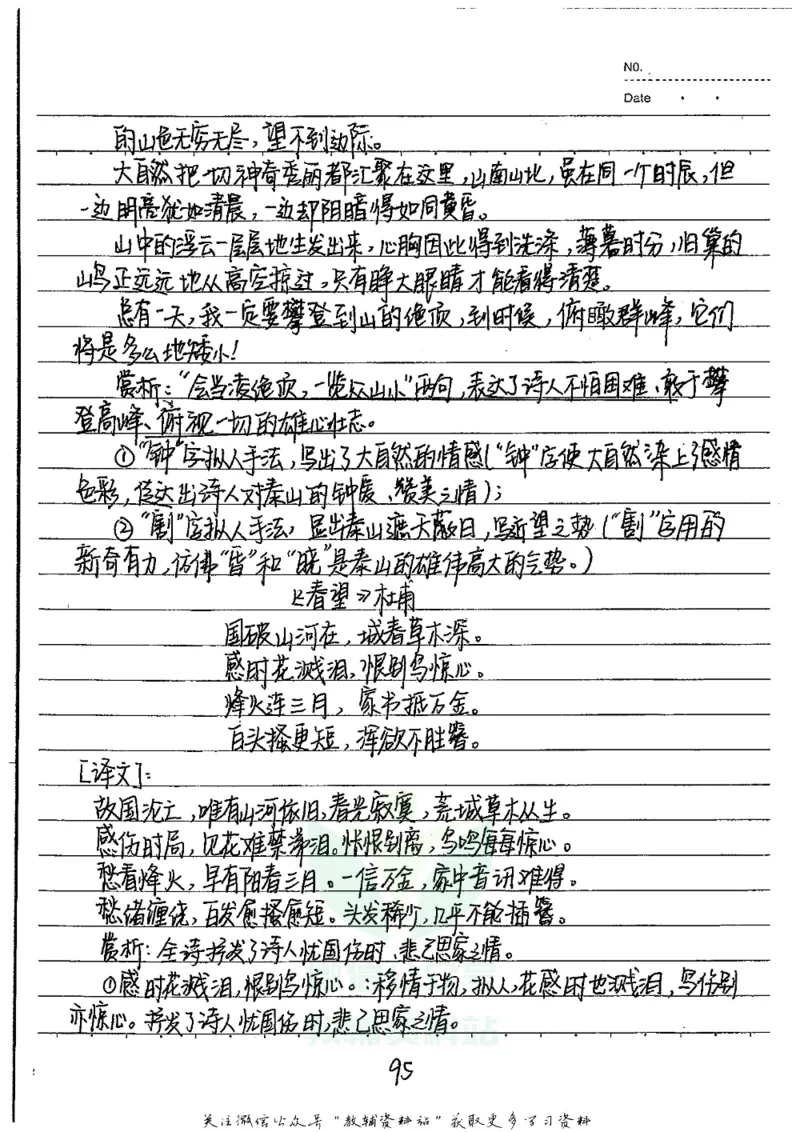 NO.
Date
的山色无穷无尽，望不到边际。
大自然把一切神奇秀丽都汇聚在这里，山南山北，虽在同一个时辰，但
一边明亮犹如清晨，一边却阴暗得如同黄昏。
山中的浮云一层层地生发出来，心胸因此得到洗涤，薄暮时分，旧巢的
山鸟正远远地从高空掠过，只有睁大眼睛才能看得清楚。
总有一天，我一定要攀登到山的绝顶，到时候，俯瞰群峰，它们
将是多么地矮小！
赏析：“会当凌绝顶，一览众山小”两句，表达了诗人不怕困难、敢于攀
登高峰、俯视一切的雄心壮志。
①“钟”字拟人手法，写出了大自然的情感（“钟”字使大自然染上了感情
色彩，传达出诗人对泰山的钟爱、赞美之情）；
②“割”字拟人手法，显出泰山遮天蔽日，写近望之势（“割”字用的
新奇有力，仿佛“昏”和“晓”是泰山的雄伟高大的气势。）
《春望》杜甫
国破山河在，城春草木深。
感时花溅泪，恨别鸟惊心。
烽火连三月，家书抵万金。
白头搔更短，浑欲不胜簪。
[译文]：
故国沦亡，唯有山河依旧，春光寂寞，荒城草木丛生。
感伤时局，见花难禁涕泪。怅恨别离，鸟鸣每每惊心。
愁看烽火，早有阳春三月。一信万金，家中音讯难得。
愁绪缠绕，白发愈搔愈短。头发稀少，几乎不能插簪。
赏析：全诗抒发了诗人忧国伤时、悲己思家之情。
①感时花溅泪，恨别鸟惊心。：移情于物，拟人，花感时也溅泪，鸟伤别
亦惊心。抒发了诗人忧国伤时，悲己思家之情。
教辅资料站
95
关注微信公众号“教辅资料站”获取更多学习资料